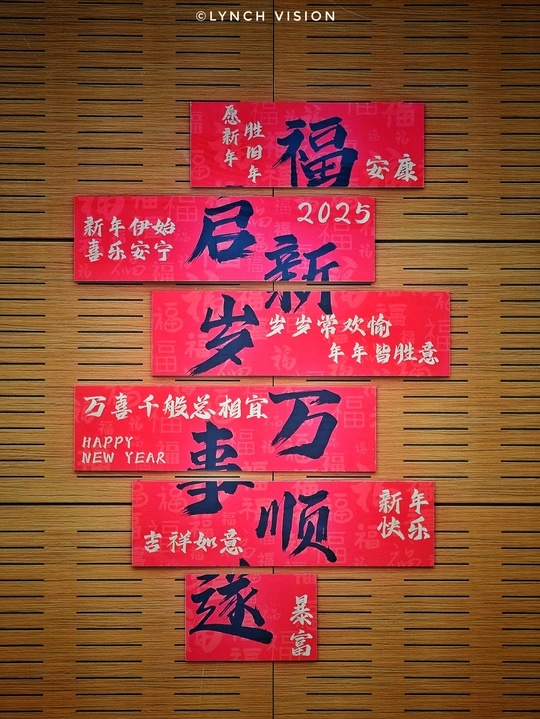 ©LYNCH VISION
愿新年
胜旧年
福
安康
2025
新年伊始
喜乐安宁
启
新
岁
岁岁常欢愉
年年皆胜意
万喜千般总相宜
HAPPY
NEW YEAR
万
事
顺
新年
快乐
吉祥如意
遂
暴富